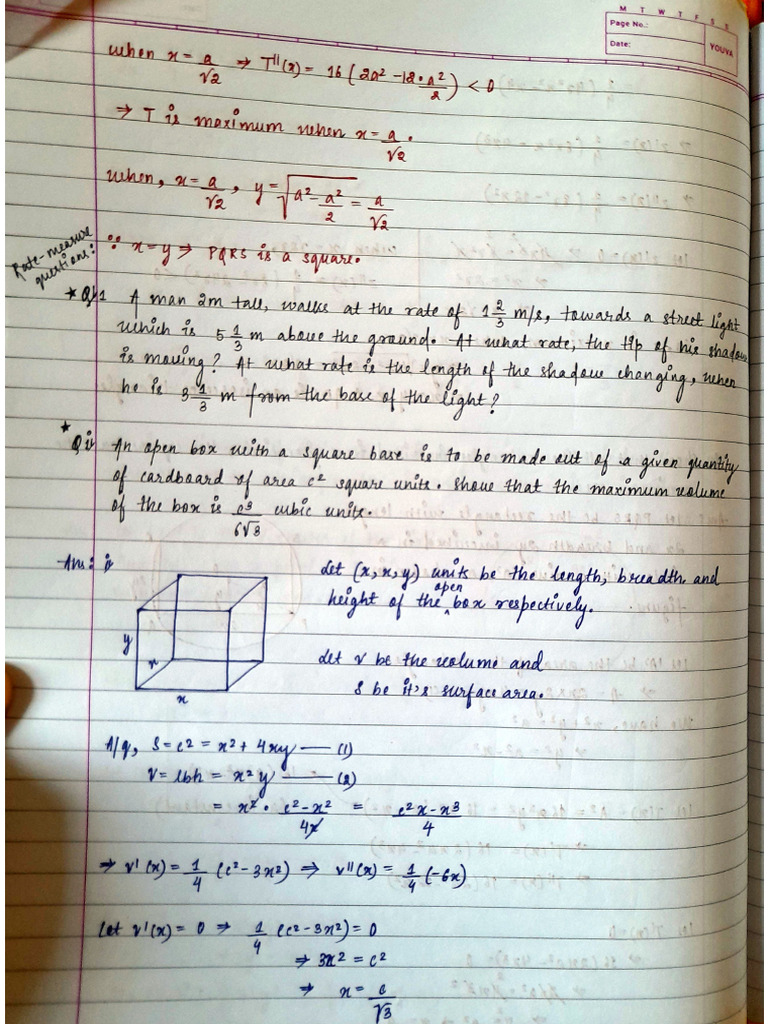 M T W T F S S
Page No.:
Date:
YOUVA
when x = a/√2 ⇒ T''(x) = 16(2a² - 12·a²/2) < 0
⇒ T is maximum when x = a/√2.
when, x = a/√2, y = √(a² - a²/2) = a/√2
∵ x = y ⇒ PQRS is a square.
Rate-measure
questions:
* Q.1 A man 2m tall, walks at the rate of 1 2/3 m/s, towards a street light
which is 5 1/3 m above the ground. At what rate, the tip of his shadow
is moving? At what rate is the length of the shadow changing, when
he is 3 1/3 m from the base of the light?
* Q ii An open box with a square base is to be made out of a given quantity
of cardboard of area c² square units. Show that the maximum volume
of the box is c³/6√3 cubic units.
Ans: i)
Let (x, x, y) units be the length, breadth and
height of the open box respectively.
y
x
x
Let V be the volume and
S be it's surface area.
A/q, S = c² = x² + 4xy — (1)
V = lbh = x²y — (2)
= x² · c² - x²/4x = c²x - x³/4
⇒ V'(x) = 1/4 (c² - 3x²) ⇒ V''(x) = 1/4 (-6x)
Let V'(x) = 0 ⇒ 1/4 (c² - 3x²) = 0
⇒ 3x² = c²
⇒ x = c/√3